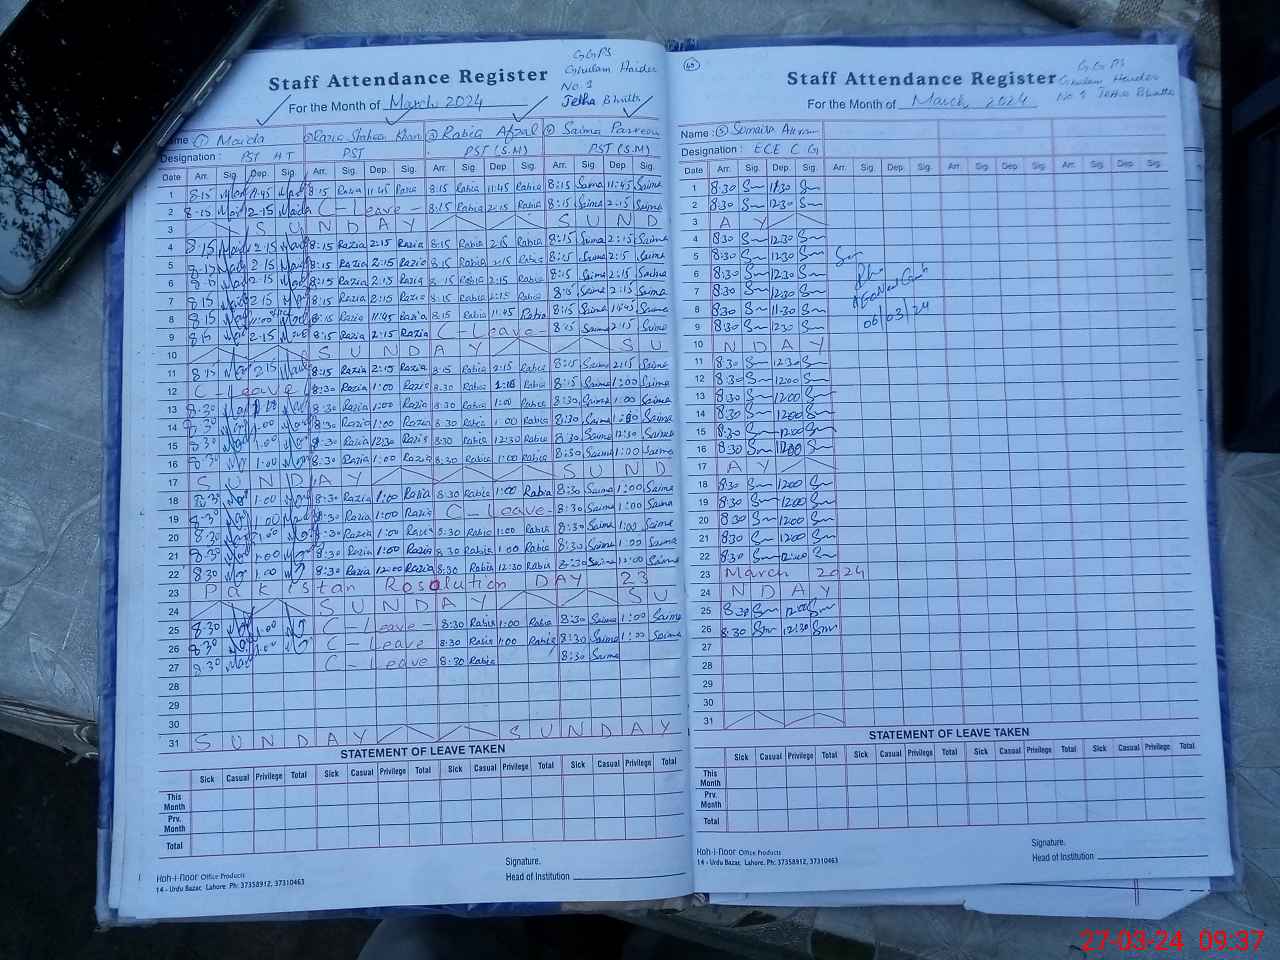 GGPS
Ghulam Haider
No 1
Jetha Bhutta
Staff Attendance Register
For the Month of March 2024
Name ① Maida ② Razia Shaheen Khan ③ Rabia Afzal ④ Saima Parveen
Designation : PST HT PST PST (S.M) PST (S.M)
Date Arr. Sig. Dep. Sig. Arr. Sig. Dep. Sig. Arr. Sig. Dep. Sig. Arr. Sig. Dep. Sig.
1 8:15 11:45 8:15 Razia 11:45 Razia 8:15 Rabia 11:45 Rabia 8:15 Saima 11:45 Saima
2 8:15 2:15 C - Leave - 8:15 Rabia 2:15 Rabia 8:15 Saima 2:15 Saima
3 S U N D A Y S U N D
4 8:15 2:15 8:15 Razia 2:15 Razia 8:15 Rabia Rabia 8:15 Saima 2:15 Saima
5 8:15 2:15 8:15 Razia 2:15 Razia 8:15 Rabia 2:15 Rabia 8:15 Saima 2:15 Saima
6 8:15 2:15 8:15 Razia 2:15 Razia 8:15 Rabia 2:15 Rabia 8:15 Saima 2:15 Saima
7 8:15 2:15 8:15 Razia 2:15 Razia 8:15 Rabia 2:15 Rabia 8:15 Saima 2:15 Saima
8 8:15 11:00 8:15 Razia 11:45 Razia 8:15 Rabia 11:45 Rabia 8:15 Saima 11:45 Saima
9 8:15 2:15 8:15 Razia 2:15 Razia C - Leave - 8:15 Saima 2:15 Saima
10 S U N D A Y S U
11 8:15 2:15 8:15 Razia 2:15 Razia 8:15 Rabia 2:15 Rabia 8:15 Saima 2:15 Saima
12 C - Leave 8:30 Razia 1:00 Razia 8:30 Rabia Rabia 8:15 Saima 1:00 Saima
13 8:30 1:00 8:30 Razia 1:00 Razia 8:30 Rabia 1:00 Rabia 8:30 Saima 1:00 Saima
14 8:30 1:00 8:30 Razia 1:00 Razia 8:30 Rabia 1:00 Rabia 8:30 Saima 1:00 Saima
15 8:30 1:00 8:30 Razia 12:30 Razia 8:30 Rabia 12:30 Rabia 8:30 Saima 12:30 Saima
16 8:30 1:00 8:30 Razia 1:00 Razia 8:30 Rabia 1:00 Rabia 8:30 Saima 1:00 Saima
17 S U N D A Y S U N D
18 8:30 1:00 8:30 Razia 1:00 Razia 8:30 Rabia 1:00 Rabia 8:30 Saima 1:00 Saima
19 8:30 1:00 8:30 Razia 1:00 Razia C - Leave - 8:30 Saima 1:00 Saima
20 8:30 1:00 8:30 Razia 1:00 Razia 8:30 Rabia 1:00 Rabia 8:30 Saima 1:00 Saima
21 8:30 1:00 8:30 Razia 1:00 Razia 8:30 Rabia 1:00 Rabia 8:30 Saima 1:00 Saima
22 8:30 1:00 8:30 Razia 12:00 Razia 8:30 Rabia 12:30 Rabia 8:30 Saima 12:00 Saima
23 Pakistan Rosolution DAY 23
24 S U N D A Y S U
25 8:30 1:00 C - Leave - 8:30 Rabia 1:00 Rabia 8:30 Saima 1:00 Saima
26 8:30 1:00 C - Leave 8:30 Rabia 1:00 Rabia 8:30 Saima 1:00 Saima
27 8:30 C - Leave 8:30 Rabia 8:30 Saima
28
29
30
31 S U N D A Y S U N D A Y
STATEMENT OF LEAVE TAKEN
Sick Casual Privilege Total Sick Casual Privilege Total Sick Casual Privilege Total Sick Casual Privilege Total
This Month
Prv. Month
Total
Signature.
Head of Institution
Koh-i-Noor Office Products
14 - Urdu Bazar, Lahore Ph: 37358912, 37310463
GGPS
Ghulam Haider
No 1 Jetha Bhutta
Staff Attendance Register
For the Month of March 2024
Name : ⑤ Sumaira
Designation : ECE C G
Date Arr. Sig. Dep. Sig. Arr. Sig. Dep. Sig. Arr. Sig. Dep. Sig. Arr. Sig. Dep. Sig.
1 8:30 11:30
2 8:30 12:30
3 A Y
4 8:30 12:30
5 8:30 12:30
6 8:30 12:30
7 8:30 12:30
8 8:30 11:30
9 8:30 12:30
06/03/24
10 N D A Y
11 8:30 12:30
12 8:30 12:00
13 8:30 12:00
14 8:30 12:00
15 8:30 12:00
16 8:30 12:00
17 A Y
18 8:30 12:00
19 8:30 12:00
20 8:30 12:00
21 8:30 12:00
22 8:30 12:00
23 March 2024
24 N D A Y
25 8:30 12:00
26 8:30 12:30
27
28
29
30
31
STATEMENT OF LEAVE TAKEN
Sick Casual Privilege Total Sick Casual Privilege Total Sick Casual Privilege Total Sick Casual Privilege Total
This Month
Prv. Month
Total
Signature.
Head of Institution
Koh-i-Noor Office Products
14 - Urdu Bazar, Lahore, Ph: 37358912, 37310463
27-03-24 09:37